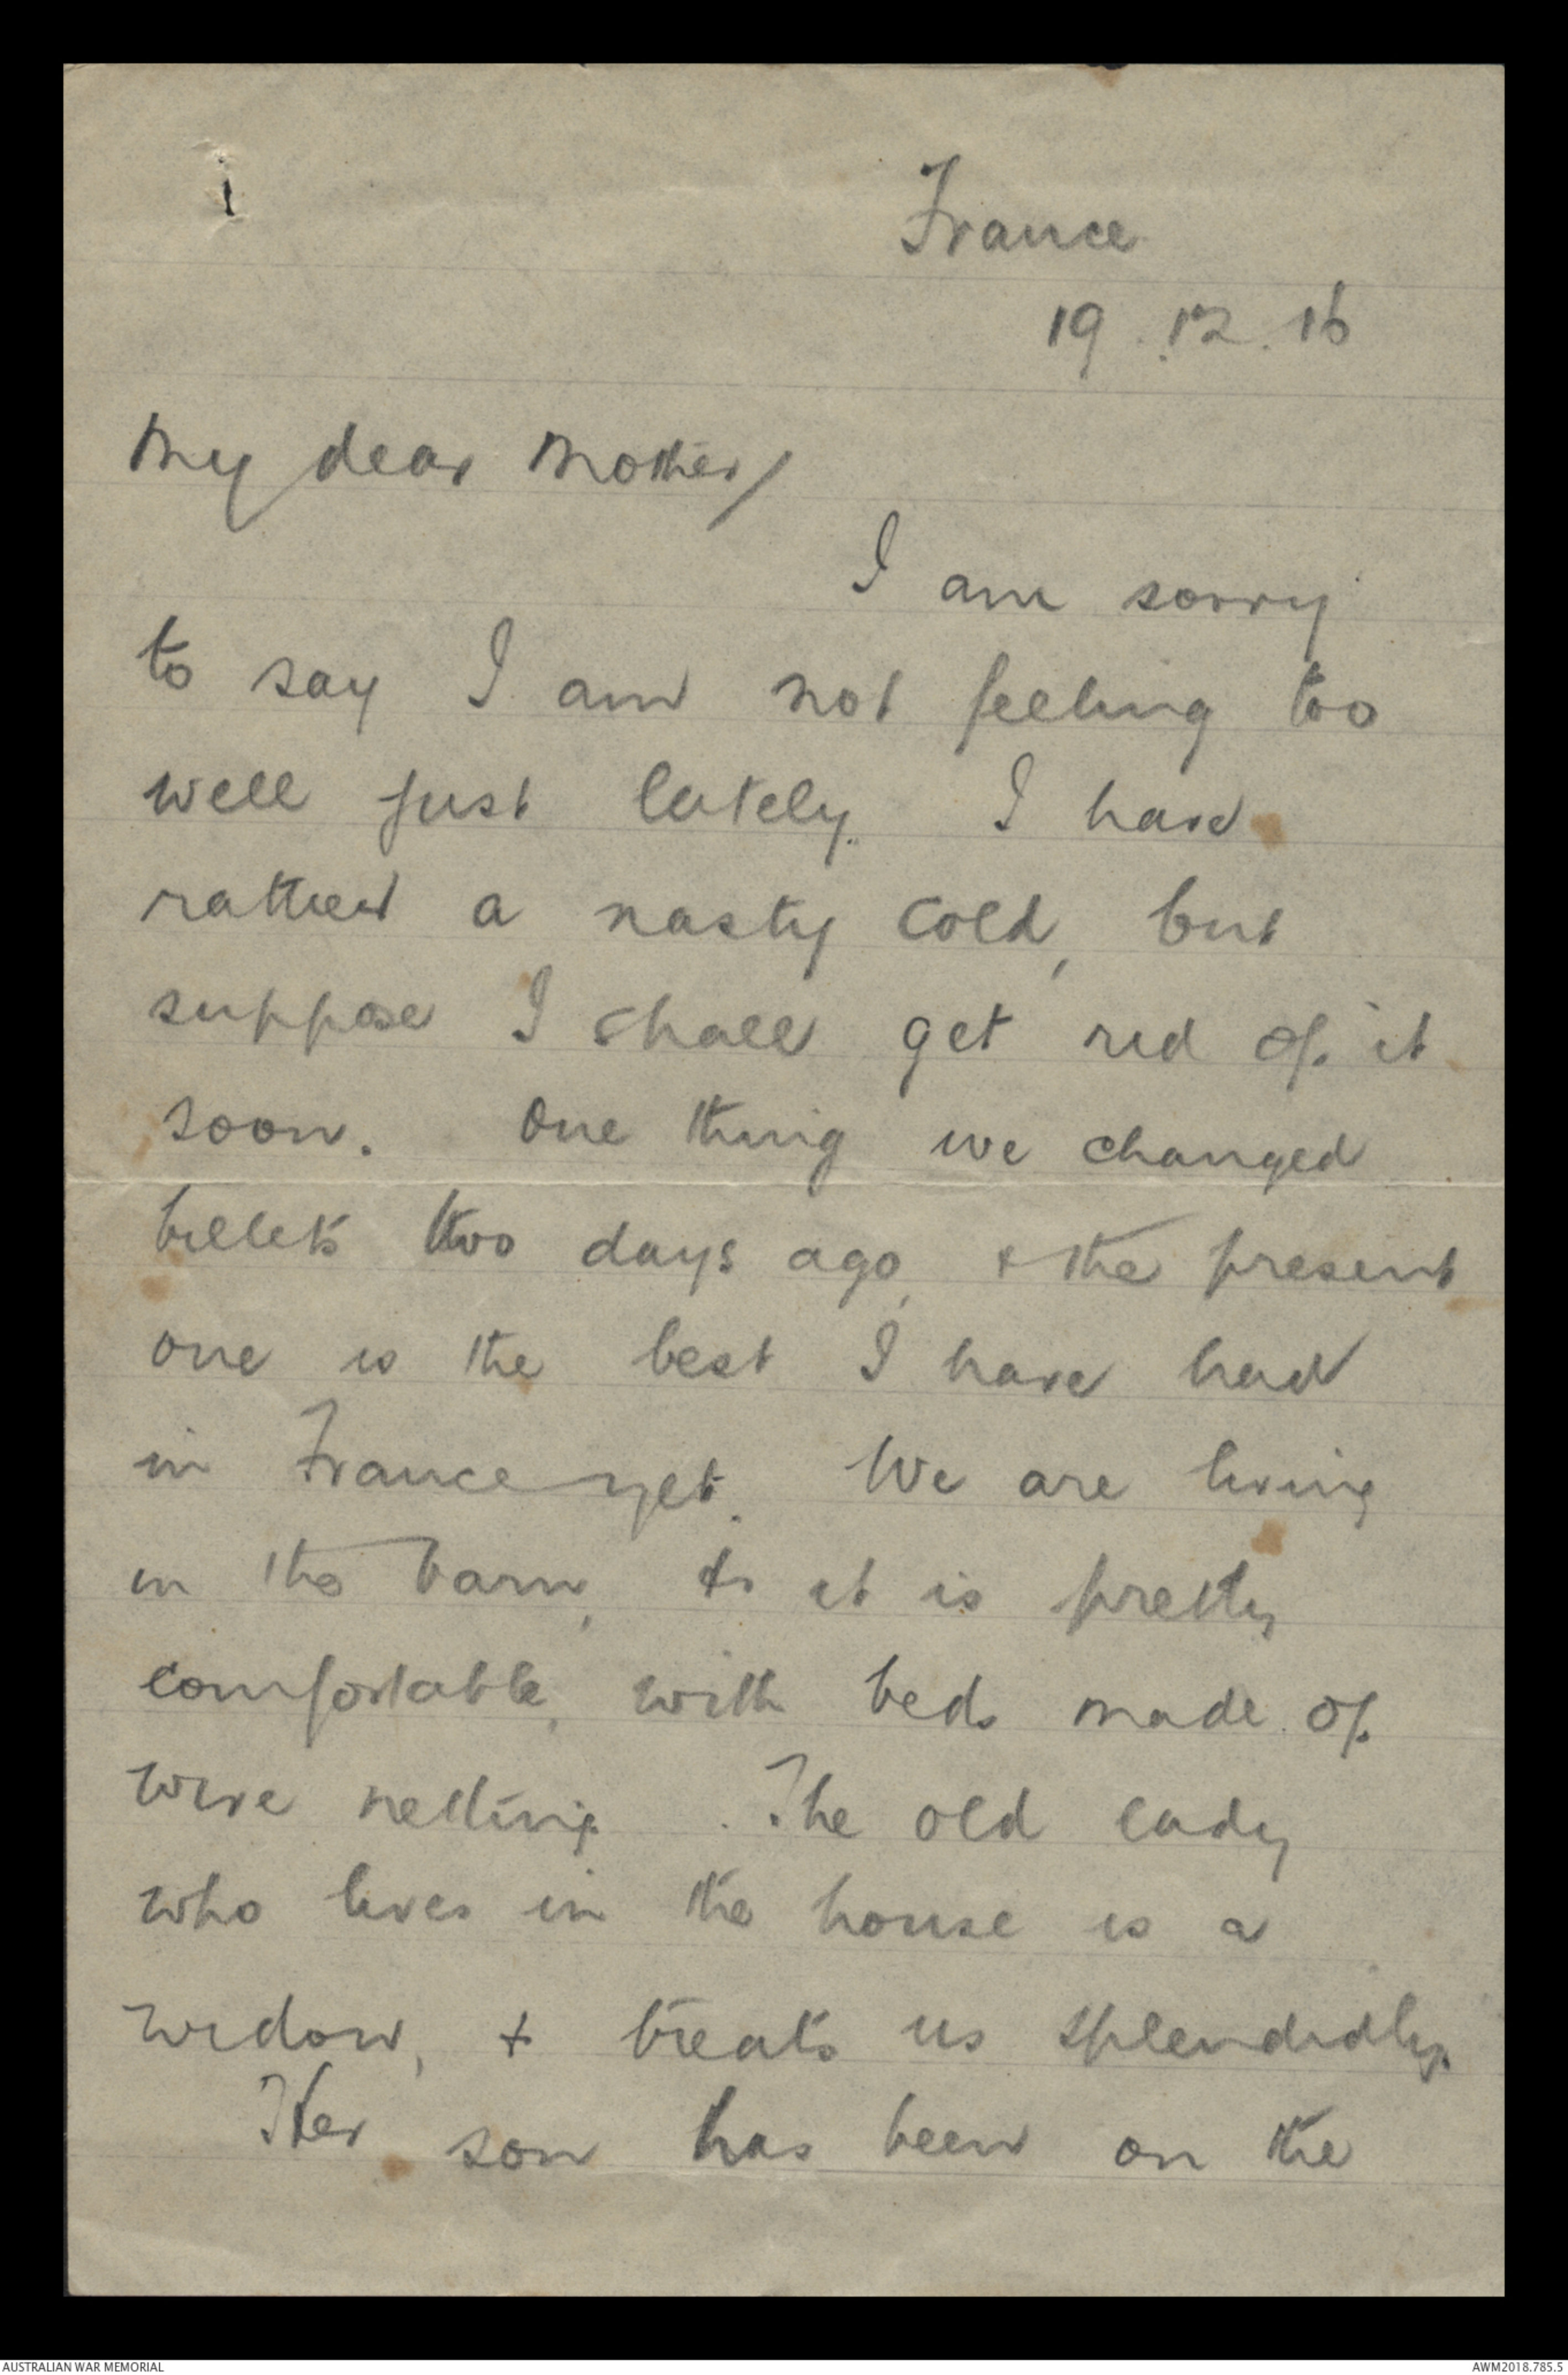 France
19.12.16
My dear Mother/
I am sorry
to say I am not feeling too
well just lately. I have
rather a nasty cold, but
suppose I shall get rid of it
soon. One thing we changed
billets two days ago, & the present
one is the best I have had
in France yet. We are living
in the barn, & it is pretty
comfortable, with beds made of
wire netting. The old lady
who lives in the house is a
widow, & treats us splendidly.
Her son has been on the
AUSTRALIAN WAR MEMORIAL
AWM2018.785.5